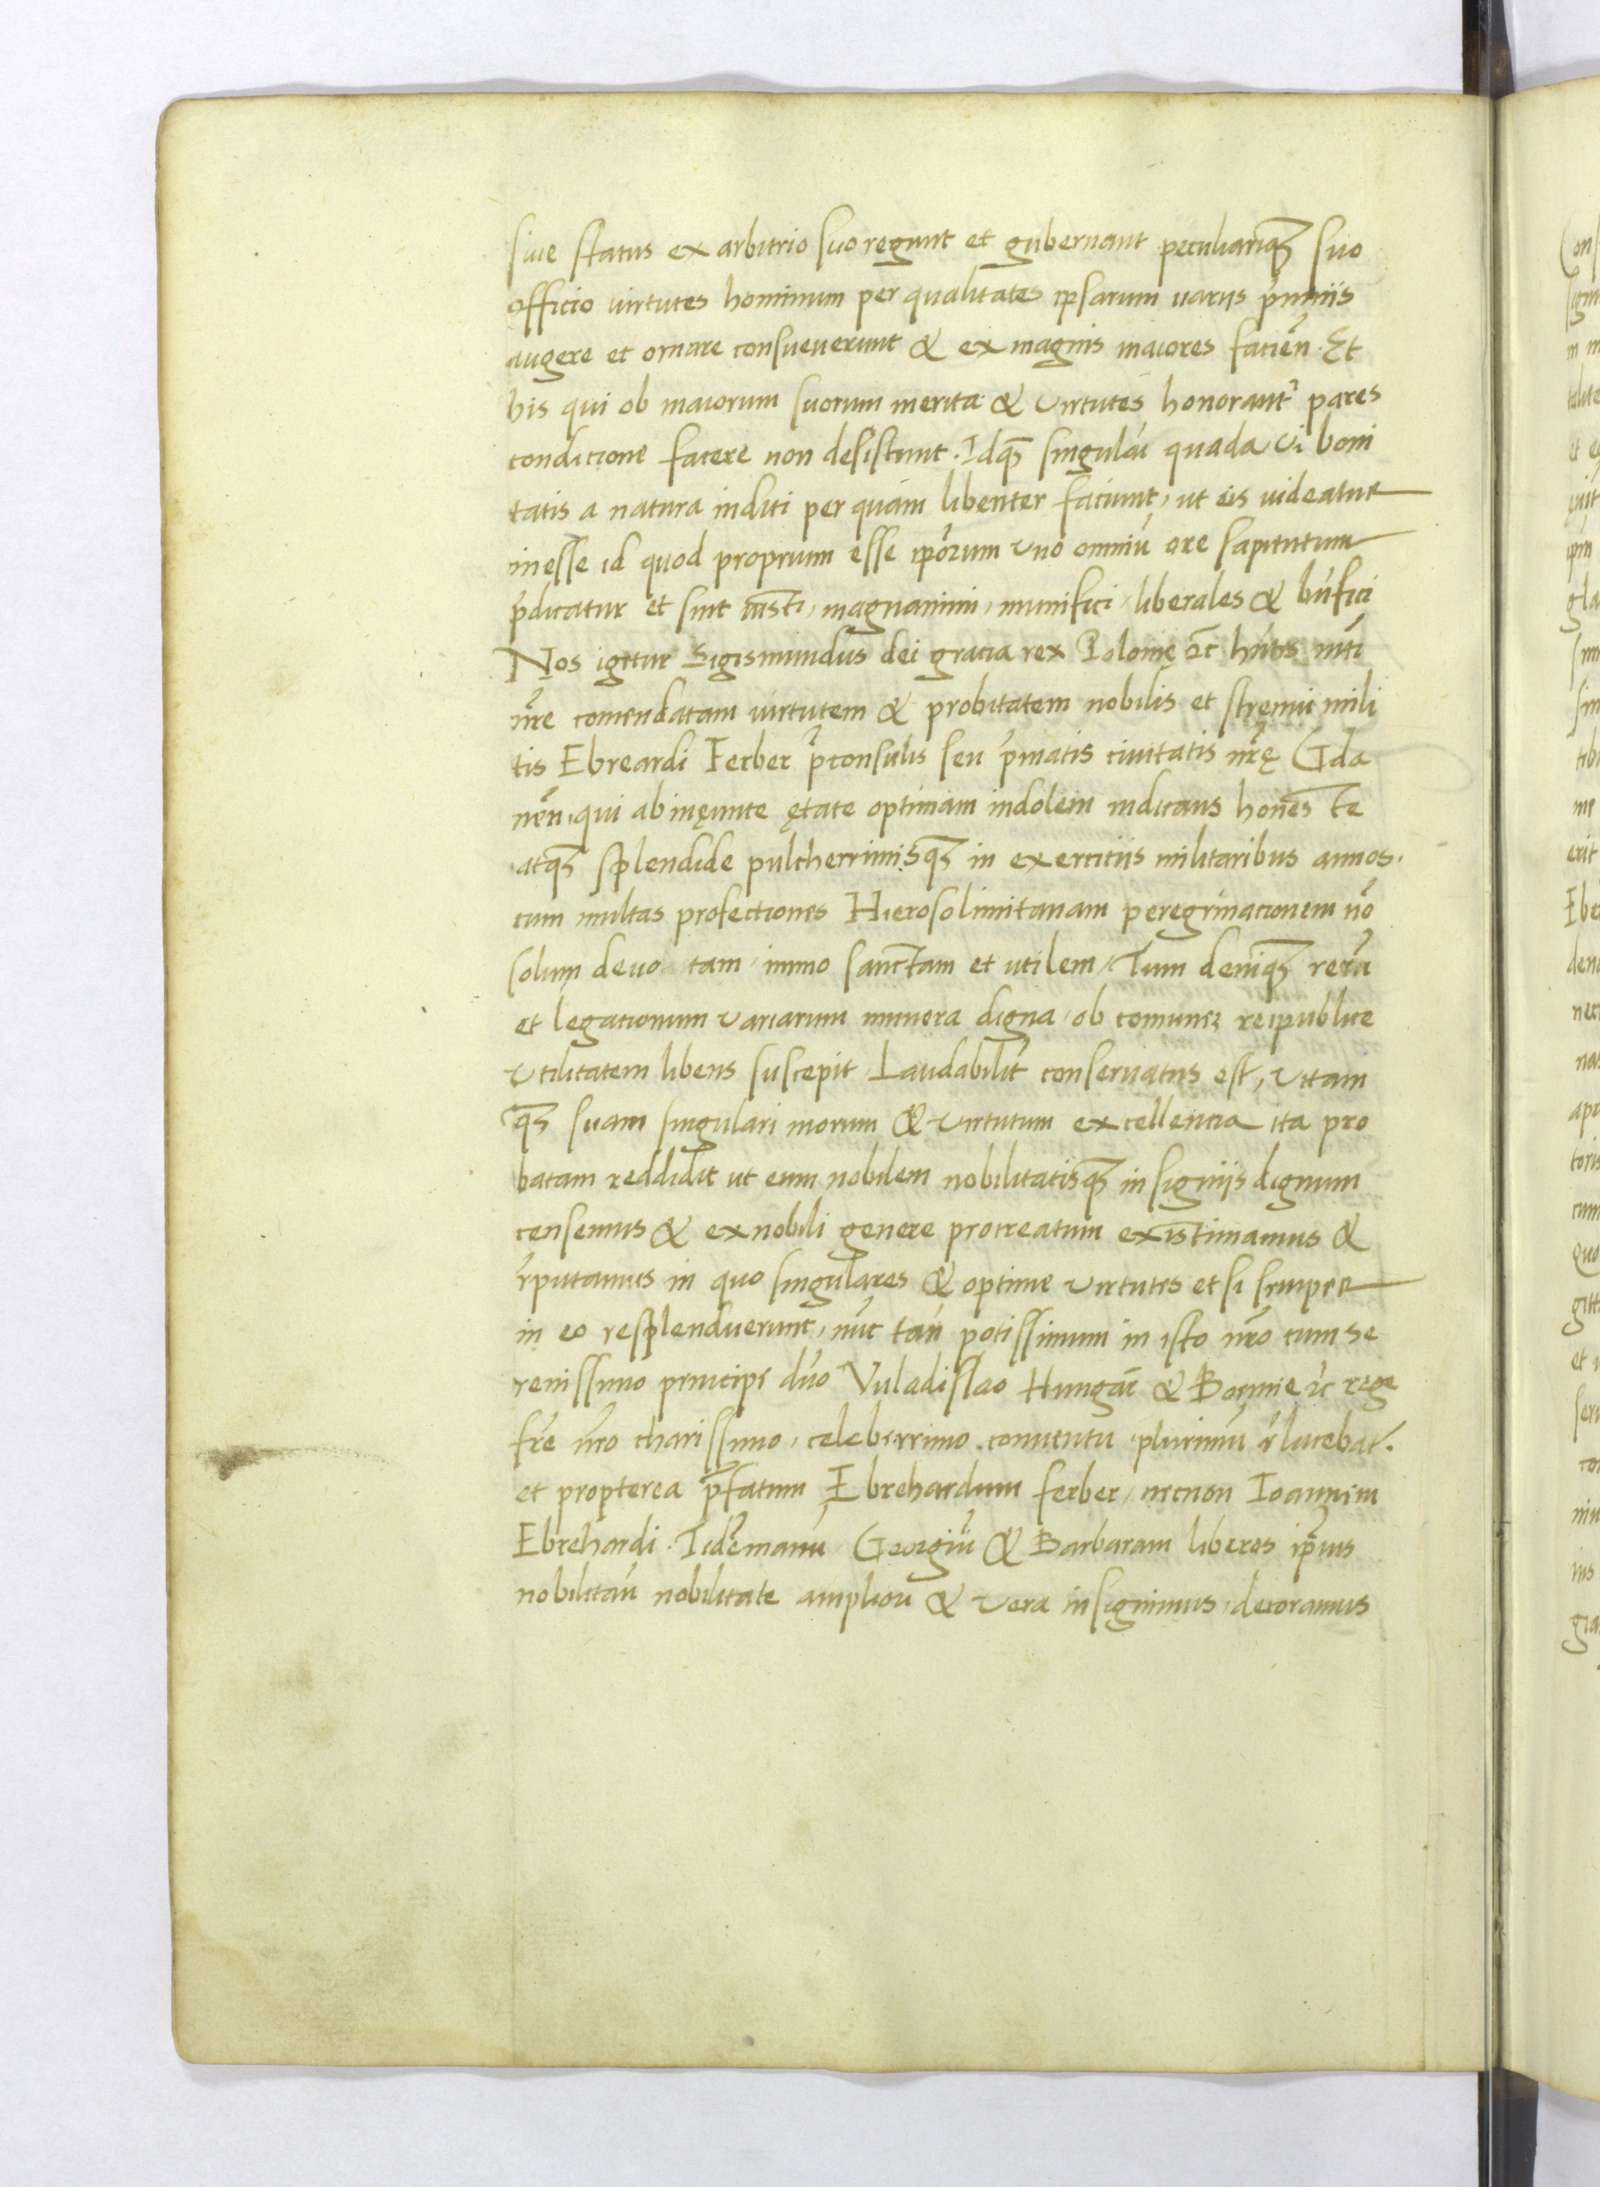 siue status ex arbitrio suo regunt et gubernant peculiariq₃ suo
officio virtutes hominum per qualitates ipsarum uariis p̄miis
augere et ornare consueuerunt & ex magnis maiores facien̄. Et
his qui ob maiorum suorum merita & virtutes honorant᷑ pares
condicione facere non desistunt. Idq₃ singulāi quada vi boni
tatis a natura inditi per quam libenter faciunt, ut eis uideatur
inesse id quod proprium esse ip̄orum vno omniū ore sapientum
p̄dicatur et sint iusti, magnanimi, munifici, liberales & bn̄fici
Nos igitur Sigismundus dei gracia rex Polonię ⁊c̄ hn̄tes mēti
nr̄e comendatam virtutem & probitatem nobilis et strenui mili
tis Ebreardi Ferber p̄consulis seu p̄matis ciuitatis nr̄ę Gda
nen̄, qui ab ineunte ętate optimam indolem indicans hones te
atq₃ splendide pulcherrimisq₃ in exercitiis militaribus annos.
cum multas profectiones Hierosolimitanam peregrinacionem nō
solum deuo tam, immo sanctam et utilem, Tum deniq₃ rerū
et legationum variarum munera digna, ob comunez reipublice
vtilitatem libens suscepit Laudabilit᷑ conseruatus est, vitam
q₃ suam singulari morum & virtutum excellencia ita pro
batam reddidit ut eum nobilem nobilitatisq₃ insigniis dignum
censemus & ex nobili genere procreatum existimamus &
r̄putamus in quo singulares & optime virtutes etsi semper
in eo resplenduerunt, nūc tan̄ potissimum in isto nr̄o cum se
renissimo principe dn̄o Vuladislao Hungar̄ & Boemie ⁊c̄ rege
fr̄e nr̄o charissimo, celeberrimo conuentu plurimū r̄lucebat.
et propterea p̄fatum Ebrehardum ferber, necnon Ioannem
Ebrehardi Tidemanū Georgiū & Barbaram liberos ip̄ius
nobilitaū nobilitate ampliori & vera insignimus, decoramus